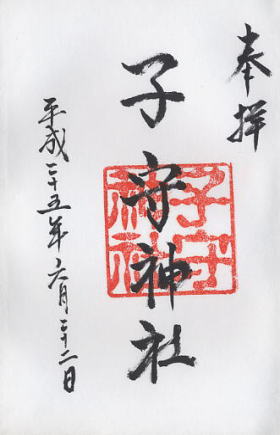 奉拝
子守神社
子守
神社
平成二十五年六月二十二日